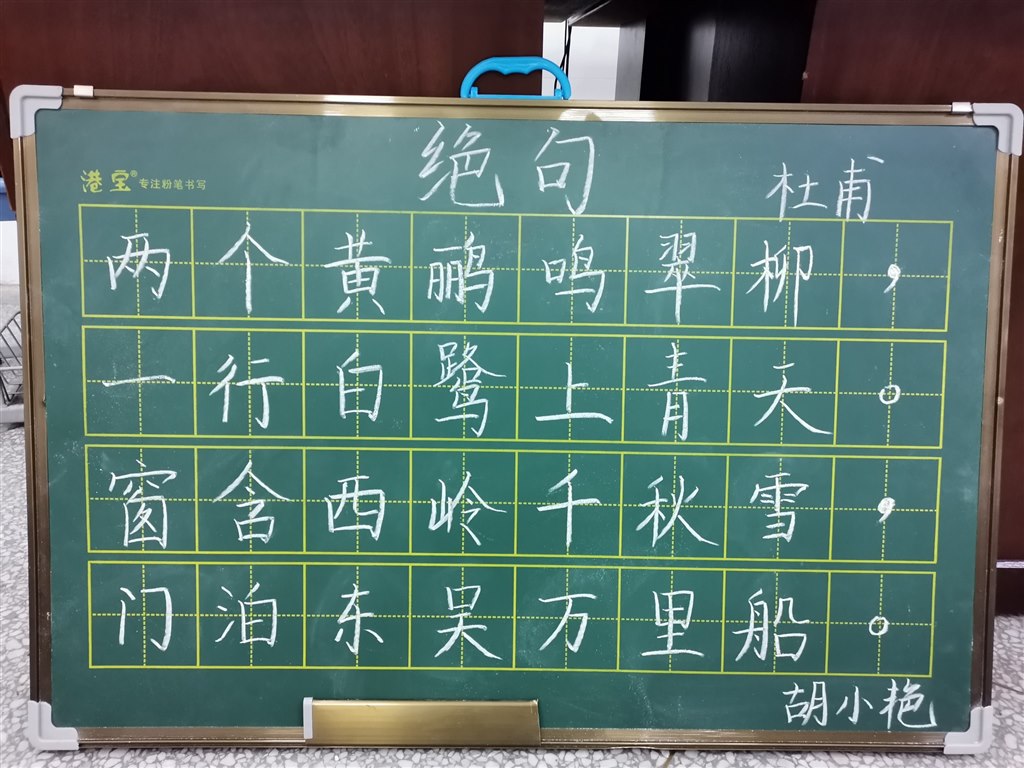 绝句
港宝® 专注粉笔书写
杜甫
两个黄鹂鸣翠柳，
一行白鹭上青天。
窗含西岭千秋雪，
门泊东吴万里船。
胡小艳